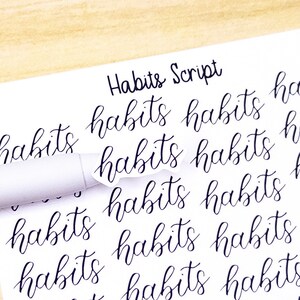 Habits Script
habits habits habits
habits habits habits
habits habits
habits habits habits
habits habits habits
habits habits